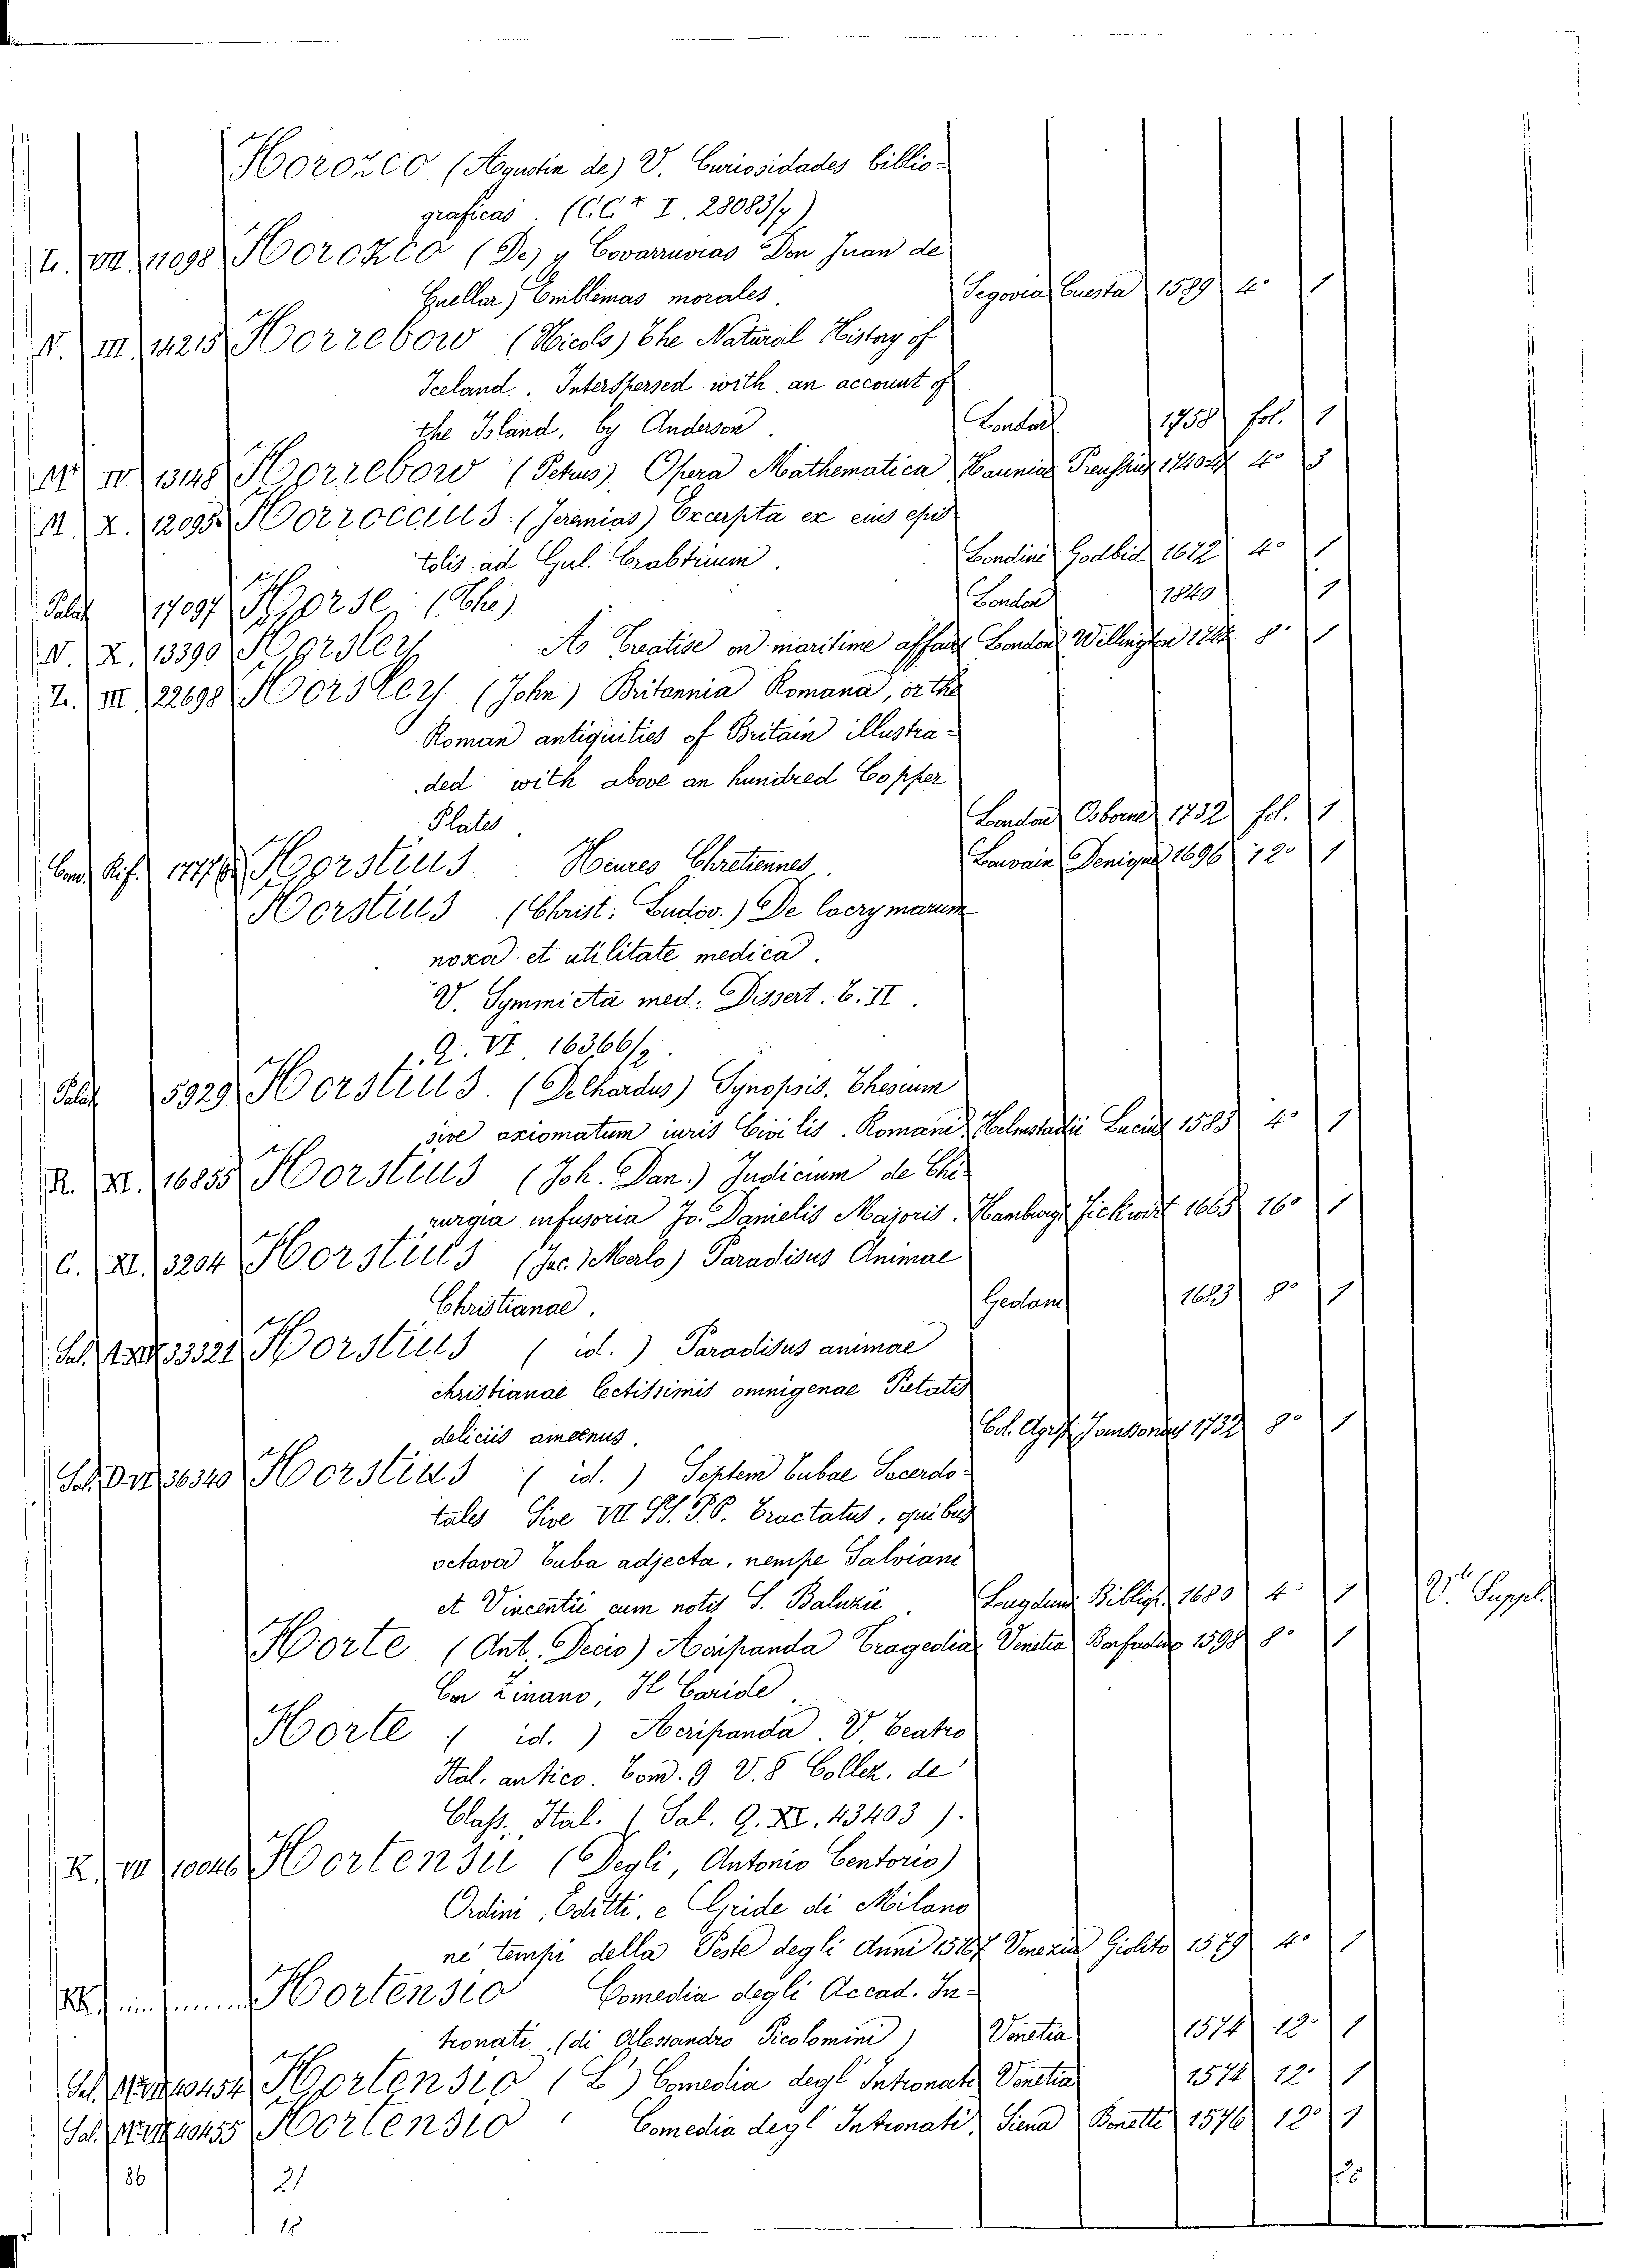 Horozco (Agustin de) V. Curiosidades biblio-
graficas. (CC* I. 28083/7)
L. VII. 11098 Horozco (De) y Covarruvias Don Juan de
Guellar) Emblemas morales. Segovia Cuesta 1589 4° 1
N. III. 14215 Horrebow (Nicols) The Natural History of
Iceland. Interspersed with an account of
the Island, by Anderson. London 1758 fol. 1
IV 13148 Horrebow (Petrus) Opera Mathematica Hauniae 4° 3
M. X. 12095 Horroccius (Jeremias) Excerpta ex eius epis
tolis ad Gul. Crabtrium. Londini Godbid 1672 4° 1
Palat 17097 Horse (The) London 1840 1
N. X. 13390 Horsley A Treatise on maritime affairs London Wellington 8° 1
Z. III 22698 Horsley (John) Britannia Romana, or the
Roman antiquities of Britain illustra-
ded with above an hundred Copper
Plates. London Osborne 1732 fol. 1
Horstius Heures Chretiennes. Louvain Denique 1696 12° 1
Horstius (Christ. Ludov.) De lacrymarum
noxa et utilitate medica.
V. Symmicta med. Dissert. T. II.
Q. VI. 16366/2.
Palat 5929 Horstius. (Gelhardus) Synopsis. Thesium
sive axiomatum iuris Civilis. Romani. Helmstadii Lucius 1583 4° 1
R. XI. 16855 Horstius (Joh. Dan.) Judicium de Chi-
rurgia infusoria Jo. Danielis Majoris. Hamburg 1665 16° 1
C. XI. 3204 Horstius (Jac. Merlo) Paradisus Animae
Christianae. Gedani 1683 8° 1
33321 Horstius (id.) Paradisus animae
christianae lectissimis omnigenae Pietatis
deliciis amoenus. Col. Agrip. Janssonius 1732 8° 1
36340 Horstius (id.) Septem tubae Sacerdo-
tales Sive VII SS. P.P. Tractatus, quibus
octava tuba adjecta, nempe Salviani
et Vincentii cum notis S. Baluzii. Lugduni 1680 4° 1 Suppl.
Horte (Ant. Decio) Acripanda Tragedia Venetia 1598 8° 1
Con Zinano, Il Caride.
Horte (id.) Acripanda. V. Teatro
Ital. antico. Tom. 9 V. 8 Collez. de'
Class. Ital. (Sal. Q. XI. 43403).
K. VII 10046 Hortensii (Degli, Antonio Centorio)
Ordini, Editti, e Gride di Milano
ne' tempi della Peste degli Anni Venezia Giolito 1579 4° 1
Hortensio Comedia degli Accad. In-
tronati. (di Alessandro Picolomini) Venetia 1574 12° 1
40454 Hortensio (L') Comedia degl' Intronati Venetia 1574 12° 1
40455 Hortensio Comedia degl' Intronati. Siena Bonetti 1576 12° 1
86 21
18